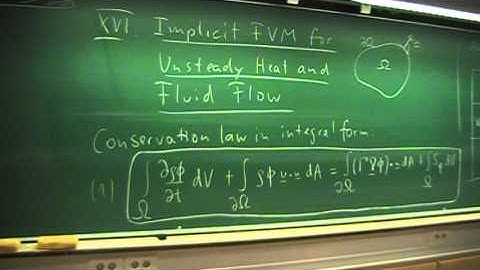 XVI. Implicit FVM for
Unsteady Heat and
Fluid Flow
∂Ω
Ω
n
Conservation law in integral form:
(1) ∫_Ω ∂ρϕ/∂t dV + ∫_∂Ω ρϕ u·n dA = ∫_∂Ω (Γ∇ϕ)·n dA + ∫_Ω S_ϕ dV